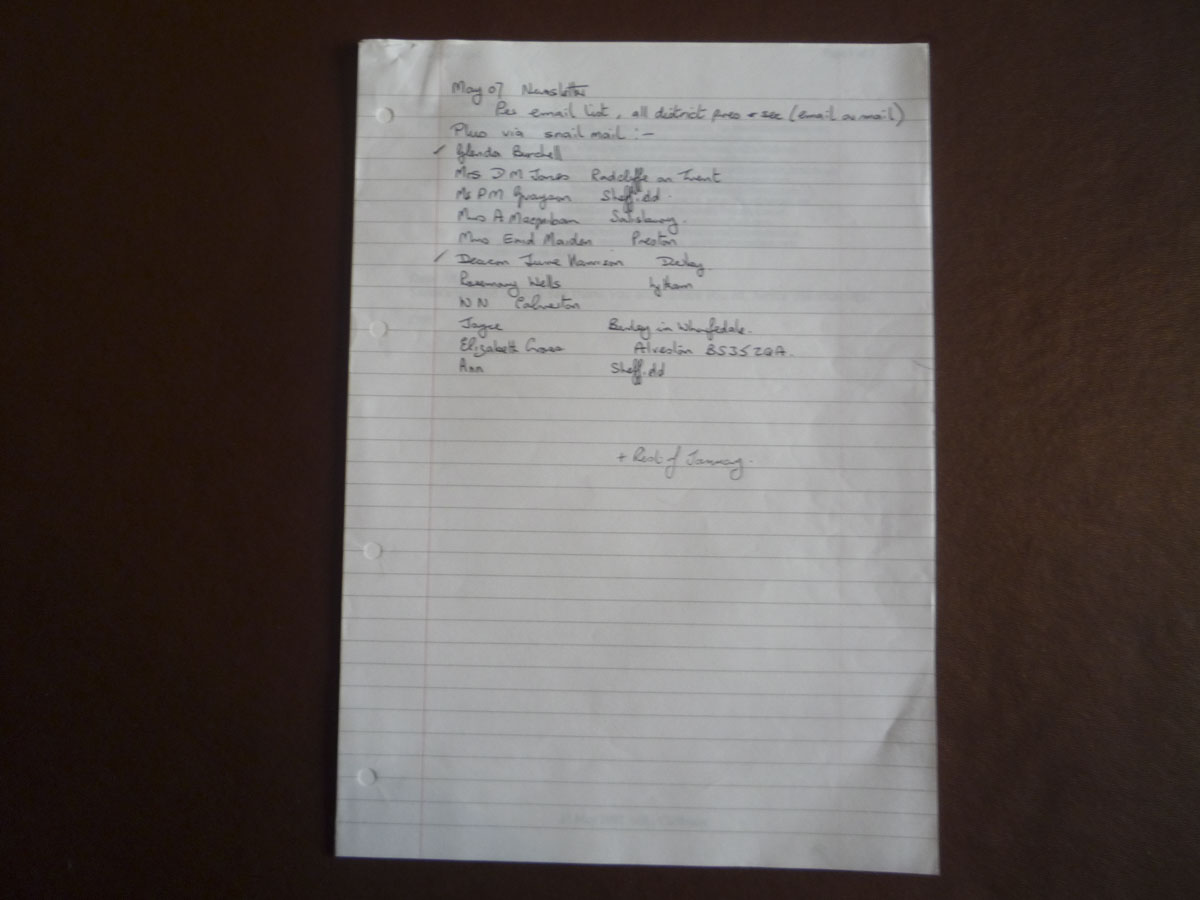 May 07 Newsletter
Per email list, all district pres + sec (email or mail)
Plus via snail mail :-
✓ Glenda Burchell
Mrs D M Jones Radcliffe on Trent
Ms P M Grayson Sheff.dd.
Mrs A Salisbury.
Mrs Enid Maiden Preston
✓ Deacon June Harrison Derby.
Rosemary Wells Lytham
N N Calverton
Joyce Burley in Wharfedale.
Elizabeth Cross Alveston BS35 2QA.
Ann Sheff.dd
+ Rest of January.